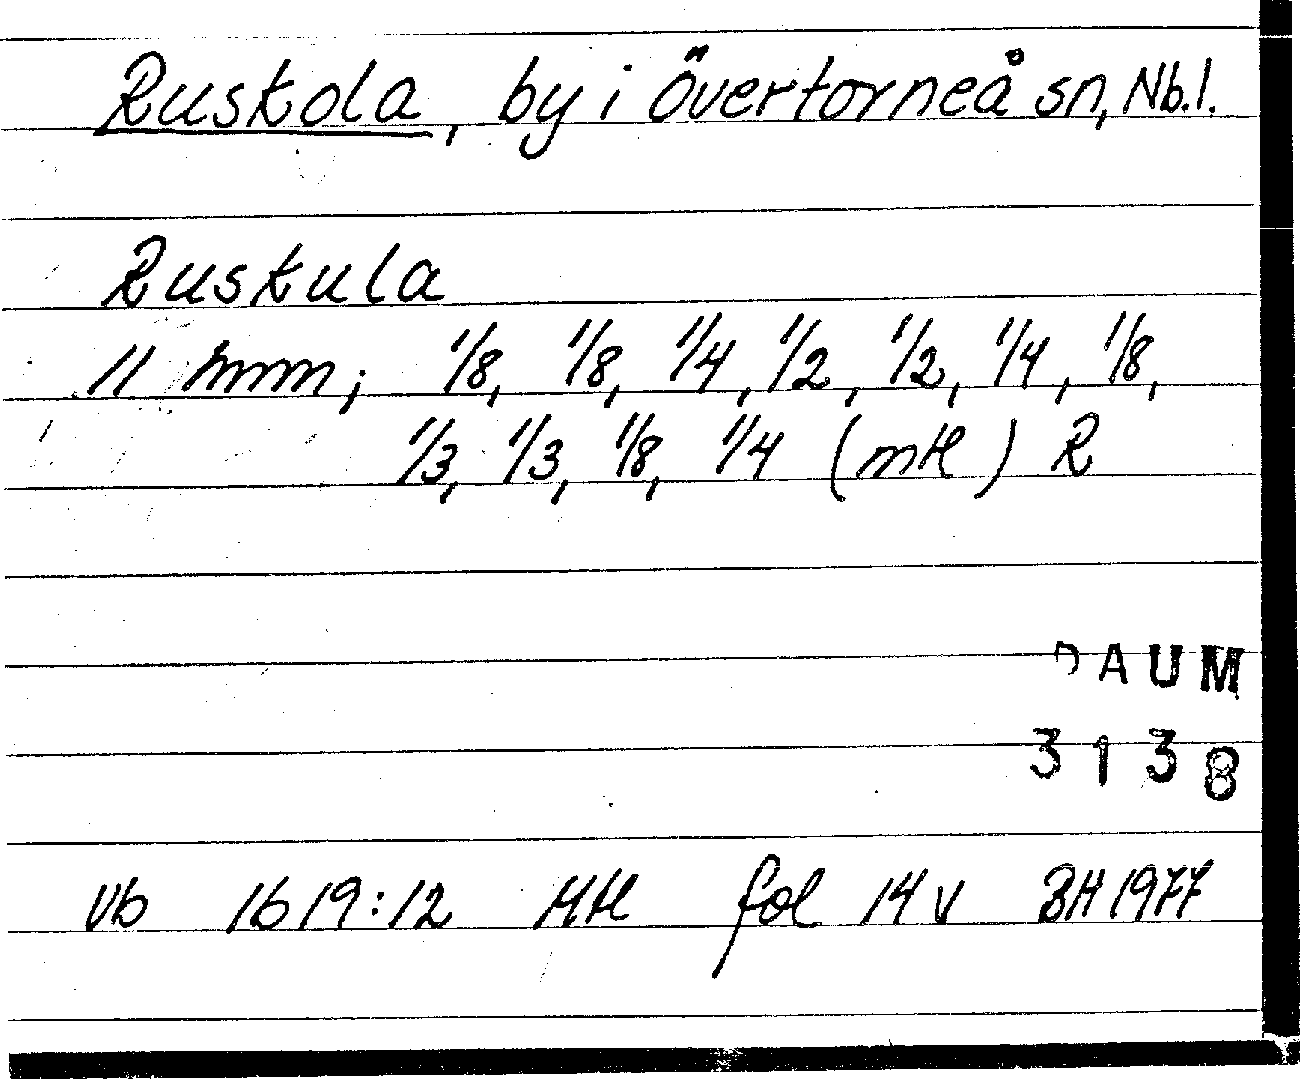 Ruskola, by i Övertorneå sn, Nb.l.
Ruskula
11 hmm; 1/8, 1/8, 1/4, 1/2, 1/2, 1/4, 1/8,
1/3, 1/3, 1/8, 1/4 (mtl) R
DAUM
3138
Vb 1619:12 Mtl fol 14 v BH 1977